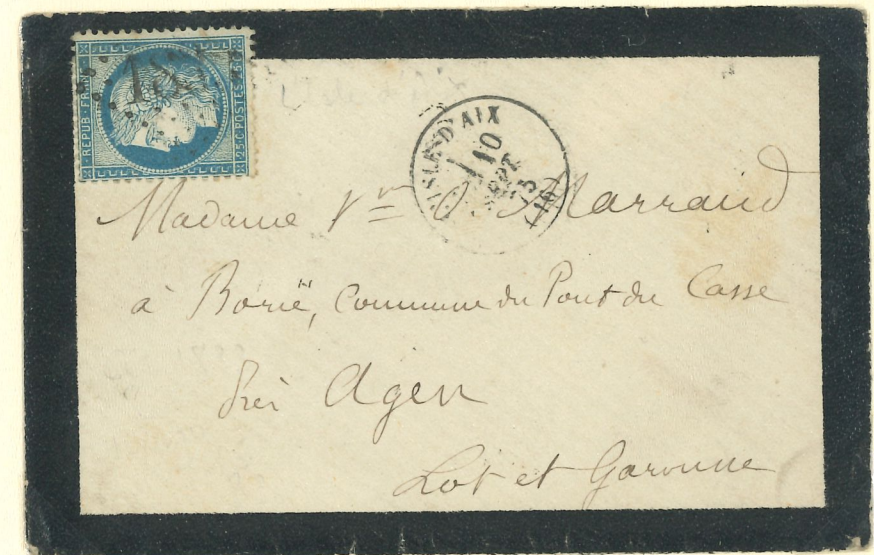 REPUB. FRANC.
25 C. POSTES 25 C.
L'Isle d'Aix
ISLE-D'AIX
10
SEPT.
75
(16)
Madame Vve Marraud
à Borië, Commune du Pont du Casse
près Agen
Lot et Garonne